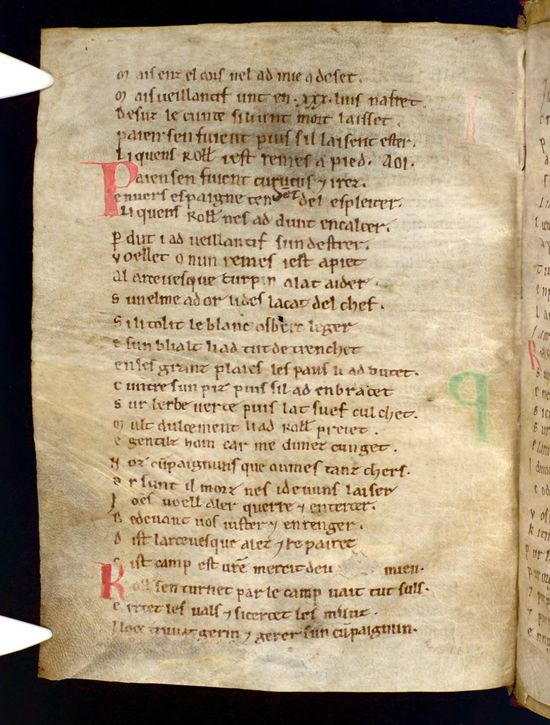 M ais enz el cors nel ad mie adeset.
M ais ueillantif unt en .xxx. lius nafret.
Desuz le cunte si lunt mort laisset.
Paien sen fuient puis sil laisent ester.
Li quens Roll i est remes a pied. AOI.
Paien sen fuient curucus ⁊ irez.
enuers espaigne tendent del espleiter.
Li quens Roll nes ad dunt encalcer.
P dut i ad ueillantif sun destrer.
Voellet o nun remes i est a piet
Al arceuesque turpin alat aider
S un elme ad or li deslacat del chef.
S i li tolit le blanc osberc leger
E sun blialt li ad tut detrenchet
En ses granz plaies les pans li ad butet.
C untre sun piz puis sil ad enbracet
S ur lerbe uerte puis lat suef culchet.
M ult dulcement li ad Roll preiet.
E gentilz hom car me dunez cunget.
N oz cūpaignuns que oumes tanz chers.
Or sunt il morz nes i deuuns laiser
J oes uoell aler querre ⁊ entercer.
D edeuant uos iuster ⁊ enrenger.
D ist larceuesque alez ⁊ repairez
C ist camp est ure mercit deu mien.
Roll sen turnet par le camp uait tut suls.
C ercet les uals ⁊ si cercet les munz.
Iloec truuat gerin ⁊ gerer sun cūpaignun.